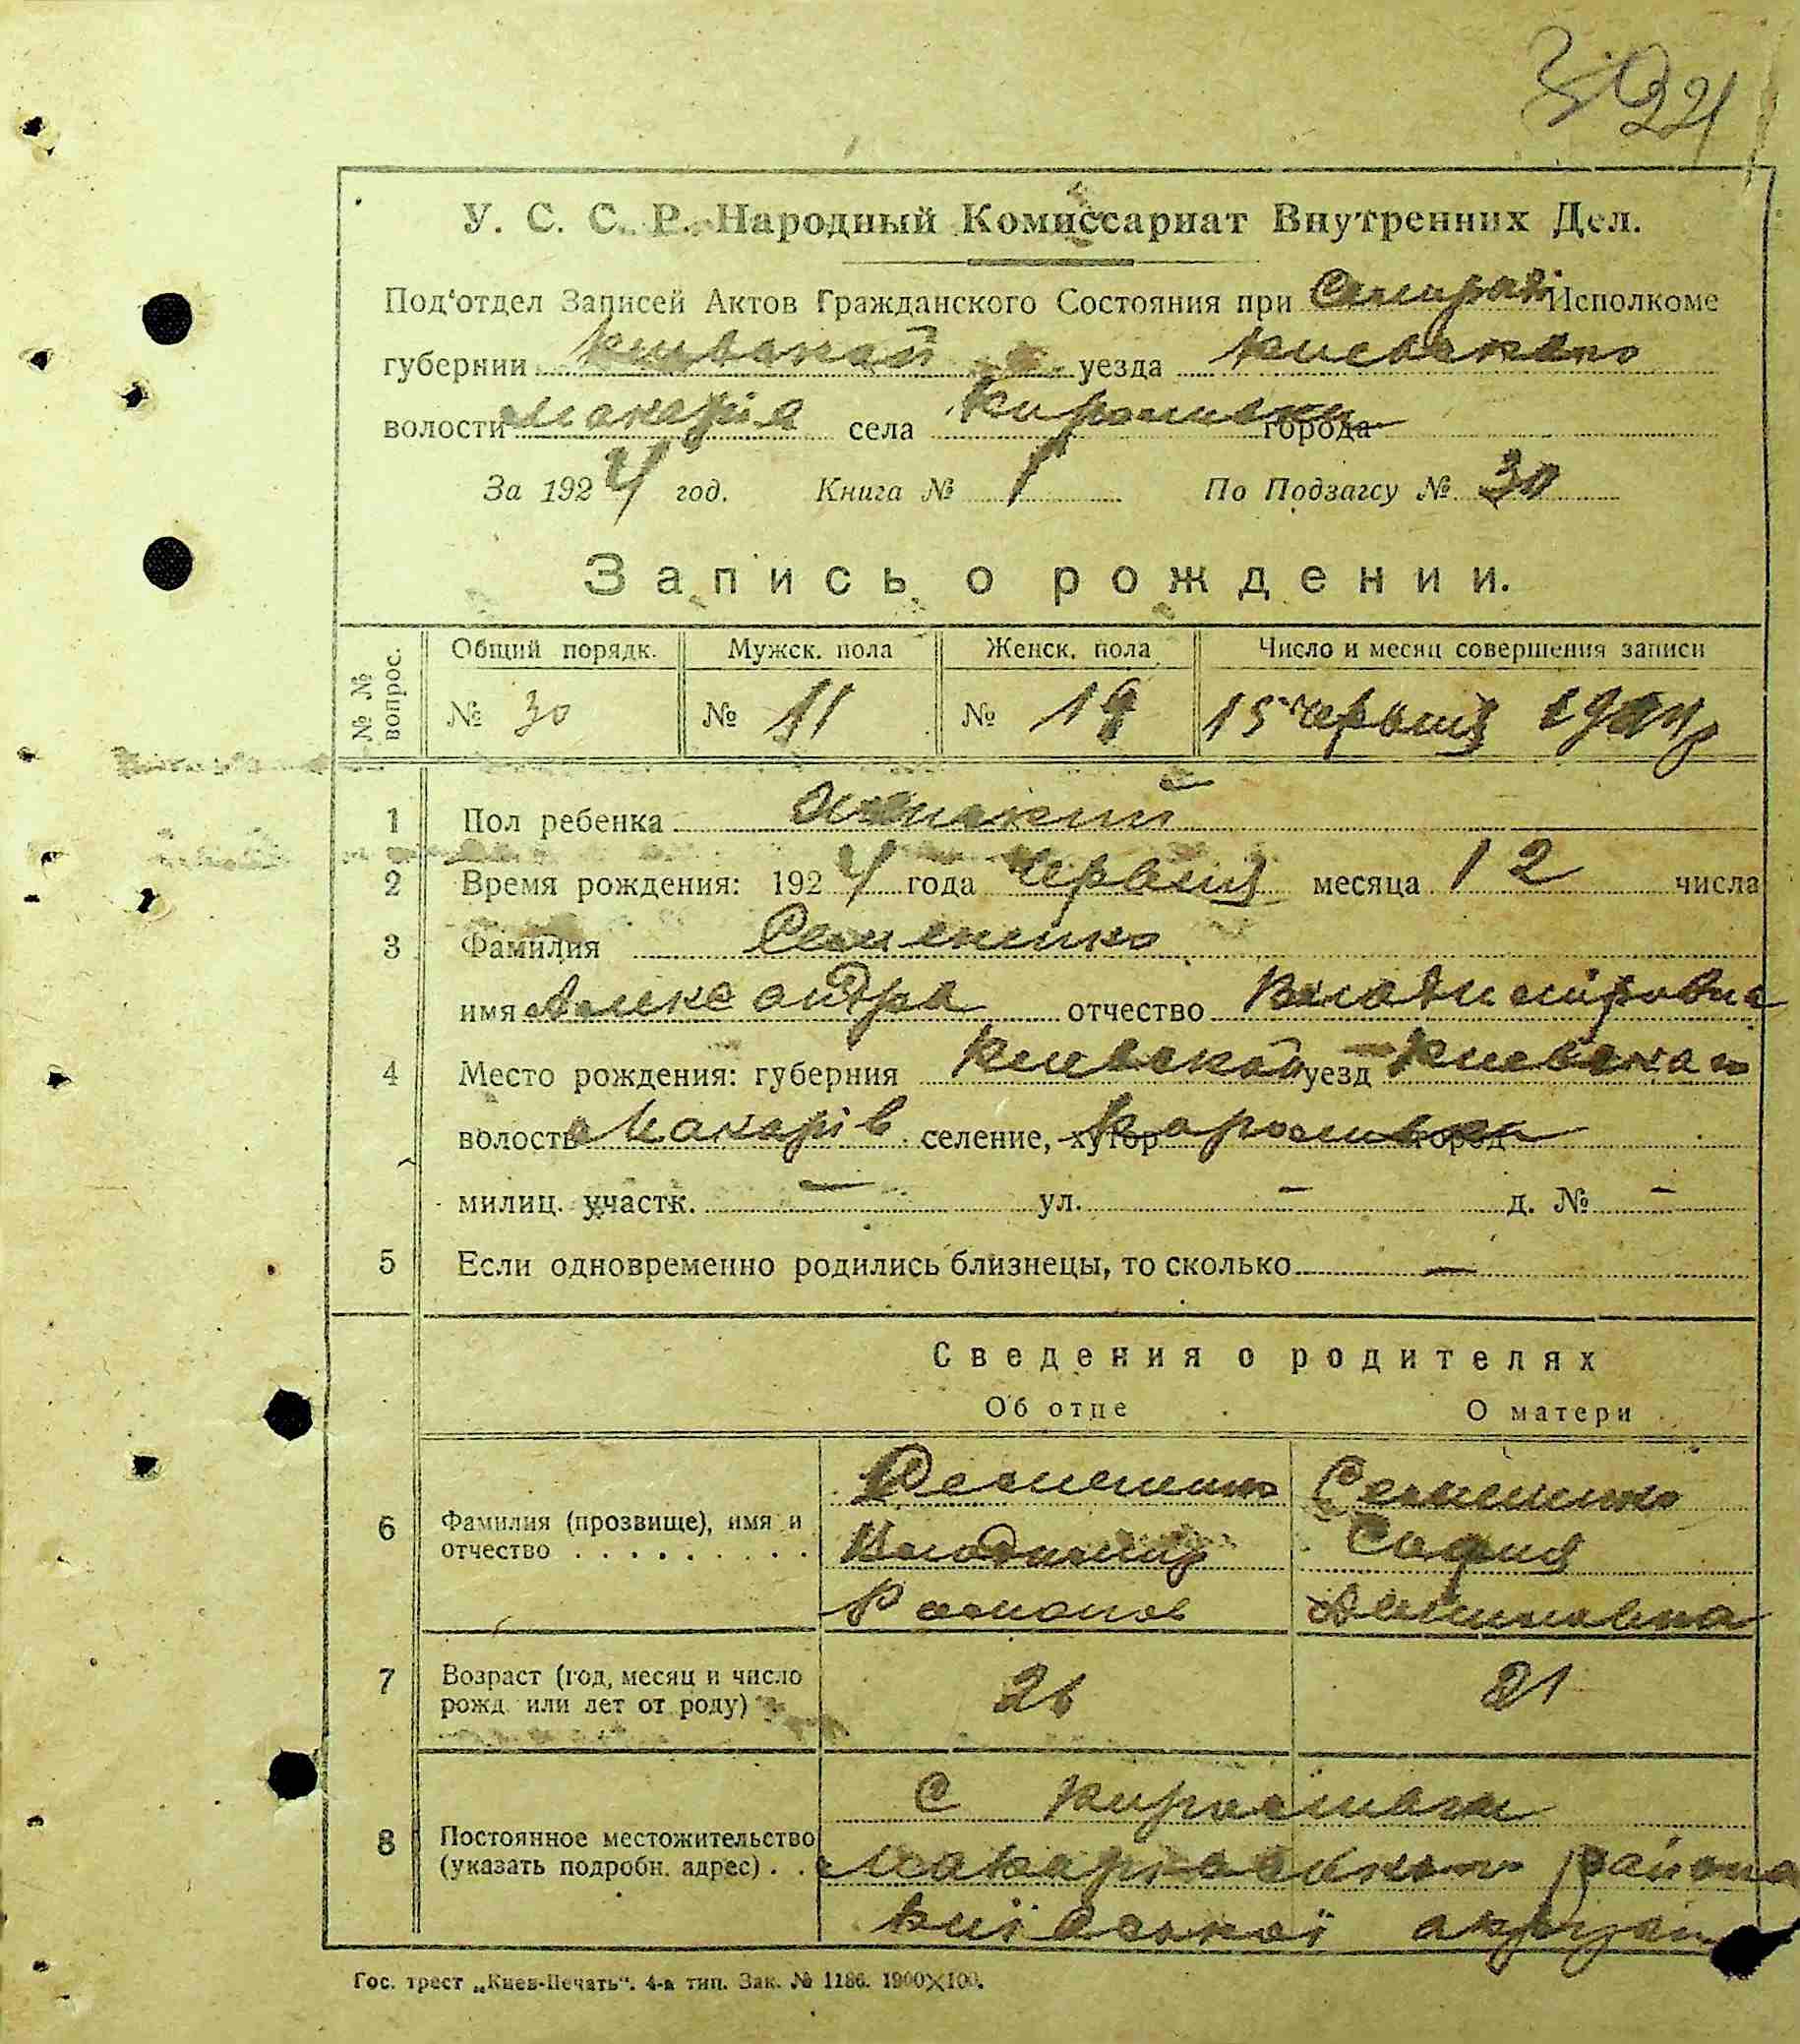 У. С. С. Р. Народный Комиссариат Внутренних Дел.
Под'отдел Записей Актов Гражданского Состояния при Исполкоме
губернии Киевской уезда Киевского
волости Макарів села города
За 1924 год. Книга № 1 По Подзагсу № 30
Запись о рождении.
№ № вопрос.
Общий порядк. Мужск. пола Женск. пола Число и месяц совершения записи
№ 30 № 11 № 19 15 червня 1924 р
1 Пол ребенка женский
2 Время рождения: 1924 года червня месяца 12 числа
3 Фамилия Семененко
имя Александра отчество Володимировна
4 Место рождения: губерния Киевской уезд Киевского
волость Макарів селение, хутор город
милиц. участк. — ул. — д. № —
5 Если одновременно родились близнецы, то сколько —
Сведения о родителях
Об отце О матери
6 Фамилия (прозвище), имя и отчество
Семененко Семененко
Володимир София
Романов
7 Возраст (год, месяц и число рожд. или лет от роду) 26 21
8 Постоянное местожительство (указать подробн. адрес)
с
Макарівського района
Київської округи
Гос. трест „Киев-Печать“. 4-я тип. Зак. № 1186. 1900×100.